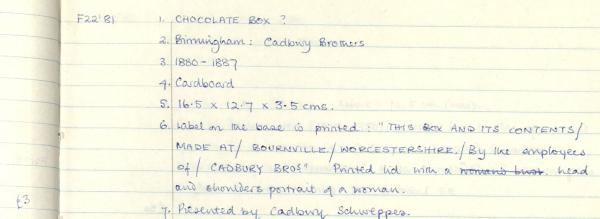 F22'81 1. CHOCOLATE BOX ?
2. Birmingham : Cadbury Brothers
3. 1880 - 1887
4. Cardboard
5. 16.5 x 12.7 x 3.5 cms.
6. Label on the base is printed : "THIS BOX AND ITS CONTENTS/
MADE AT/ BOURNVILLE/ WORCESTERSHIRE./ By the employees
of/ CADBURY BROS" Printed lid with a woman's bust. head
and shoulders portrait of a woman.
£3 7. Presented by Cadbury Schweppes.